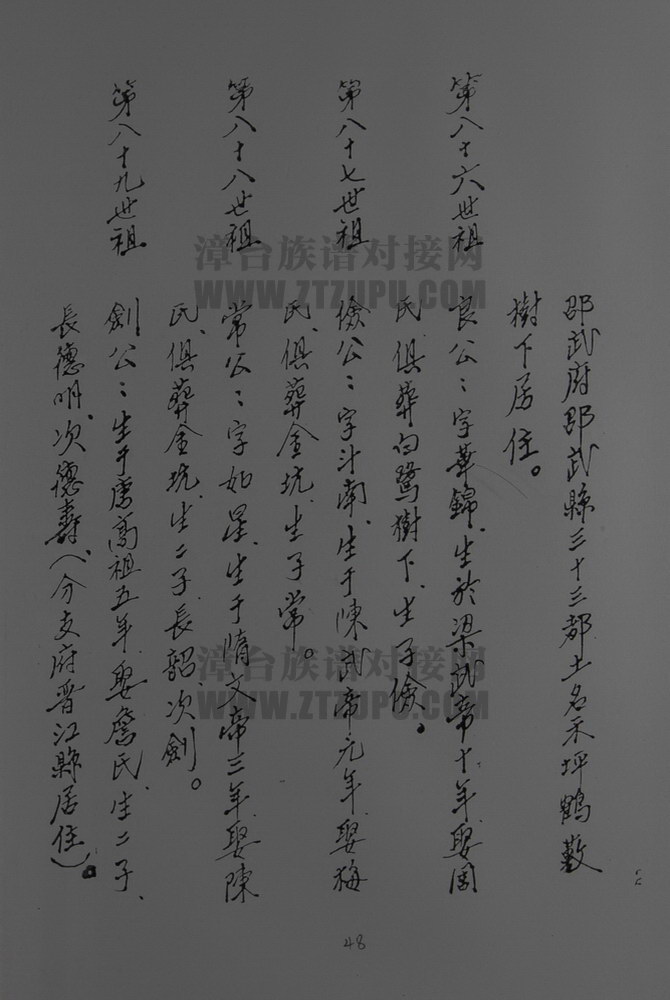 邵武府邵武縣三十三都土名禾坪鶴藪
樹下居住。
第八十六世祖
良公：字華錦、生於梁武帝十年、娶周
氏、俱葬白鷺樹下、生子儉。
第八十七世祖
儉公：字斗南、生于陳武帝元年、娶梅
氏、俱葬金坑、生子常。
第八十八世祖
常公：字如星、生于隋文帝三年、娶陳
氏、俱葬金坑、生二子、長韶、次劍。
第八十九世祖
劍公：生于唐高祖五年、娶詹氏、生二子、
長德明、次德壽、（分支府晋江縣居住）。
48
漳台族谱对接网
WWW.ZTZUPU.COM
漳台族谱对接网
WWW.ZTZUPU.COM